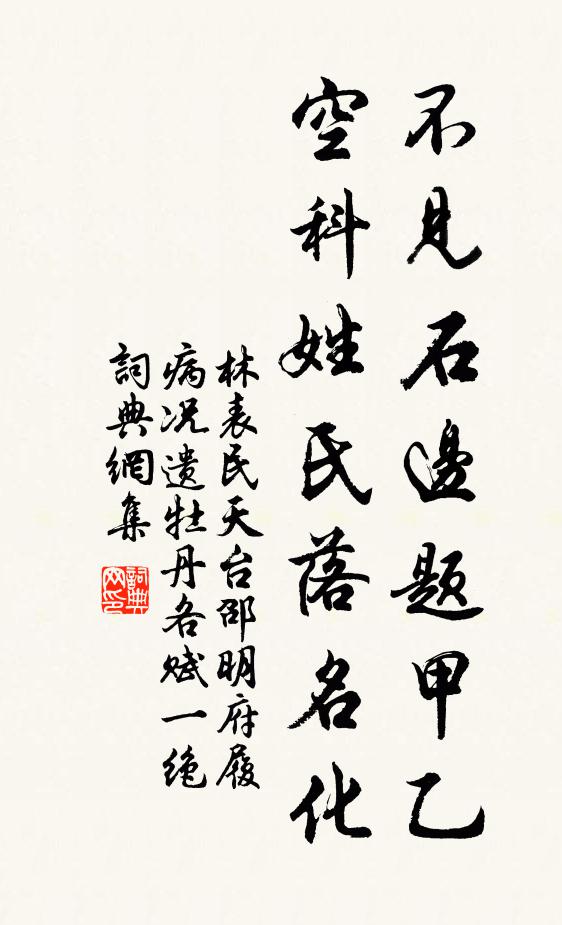 不見石邊題甲乙
空科姓氏落名化
林表民天台邵明府履
病况遺牡丹各賦一绝
詞典網集
詞典网印